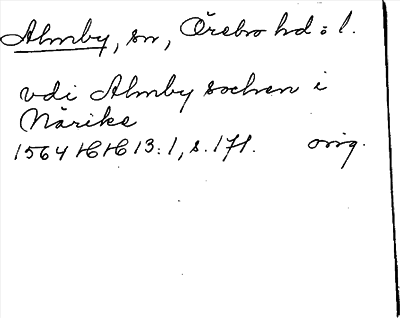 Almby, sn, Örebro hd o l.
vdi Almby sochen i
Närike
1564 HH 13:1, s. 171. orig.